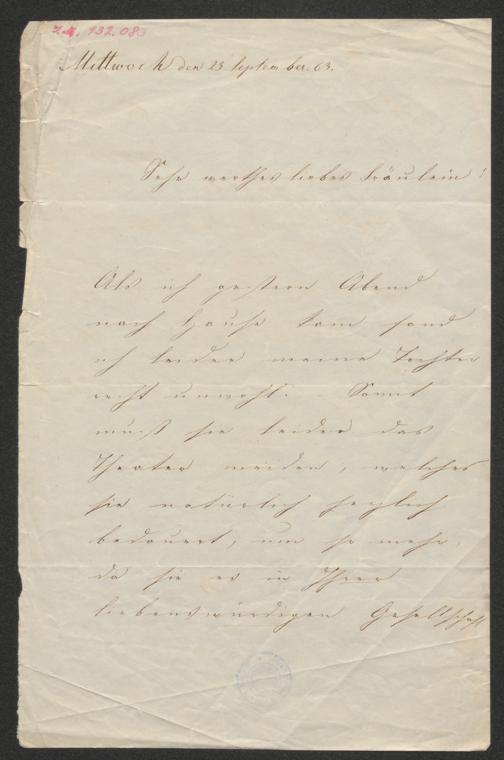 I.N. 132.083
Mittwoch den 23 September. 63.
Sehr werthes liebes Fräulein!
Als ich gestern Abend
nach Hause kam fand
ich leider meine Tochter
recht unwohl. - Somit
muß sie leider das
Theater meiden, welches
sie natürlich herzlich
bedauert, um so mehr,
da sie es in Ihrer
liebenswürdigen Gesellschaft